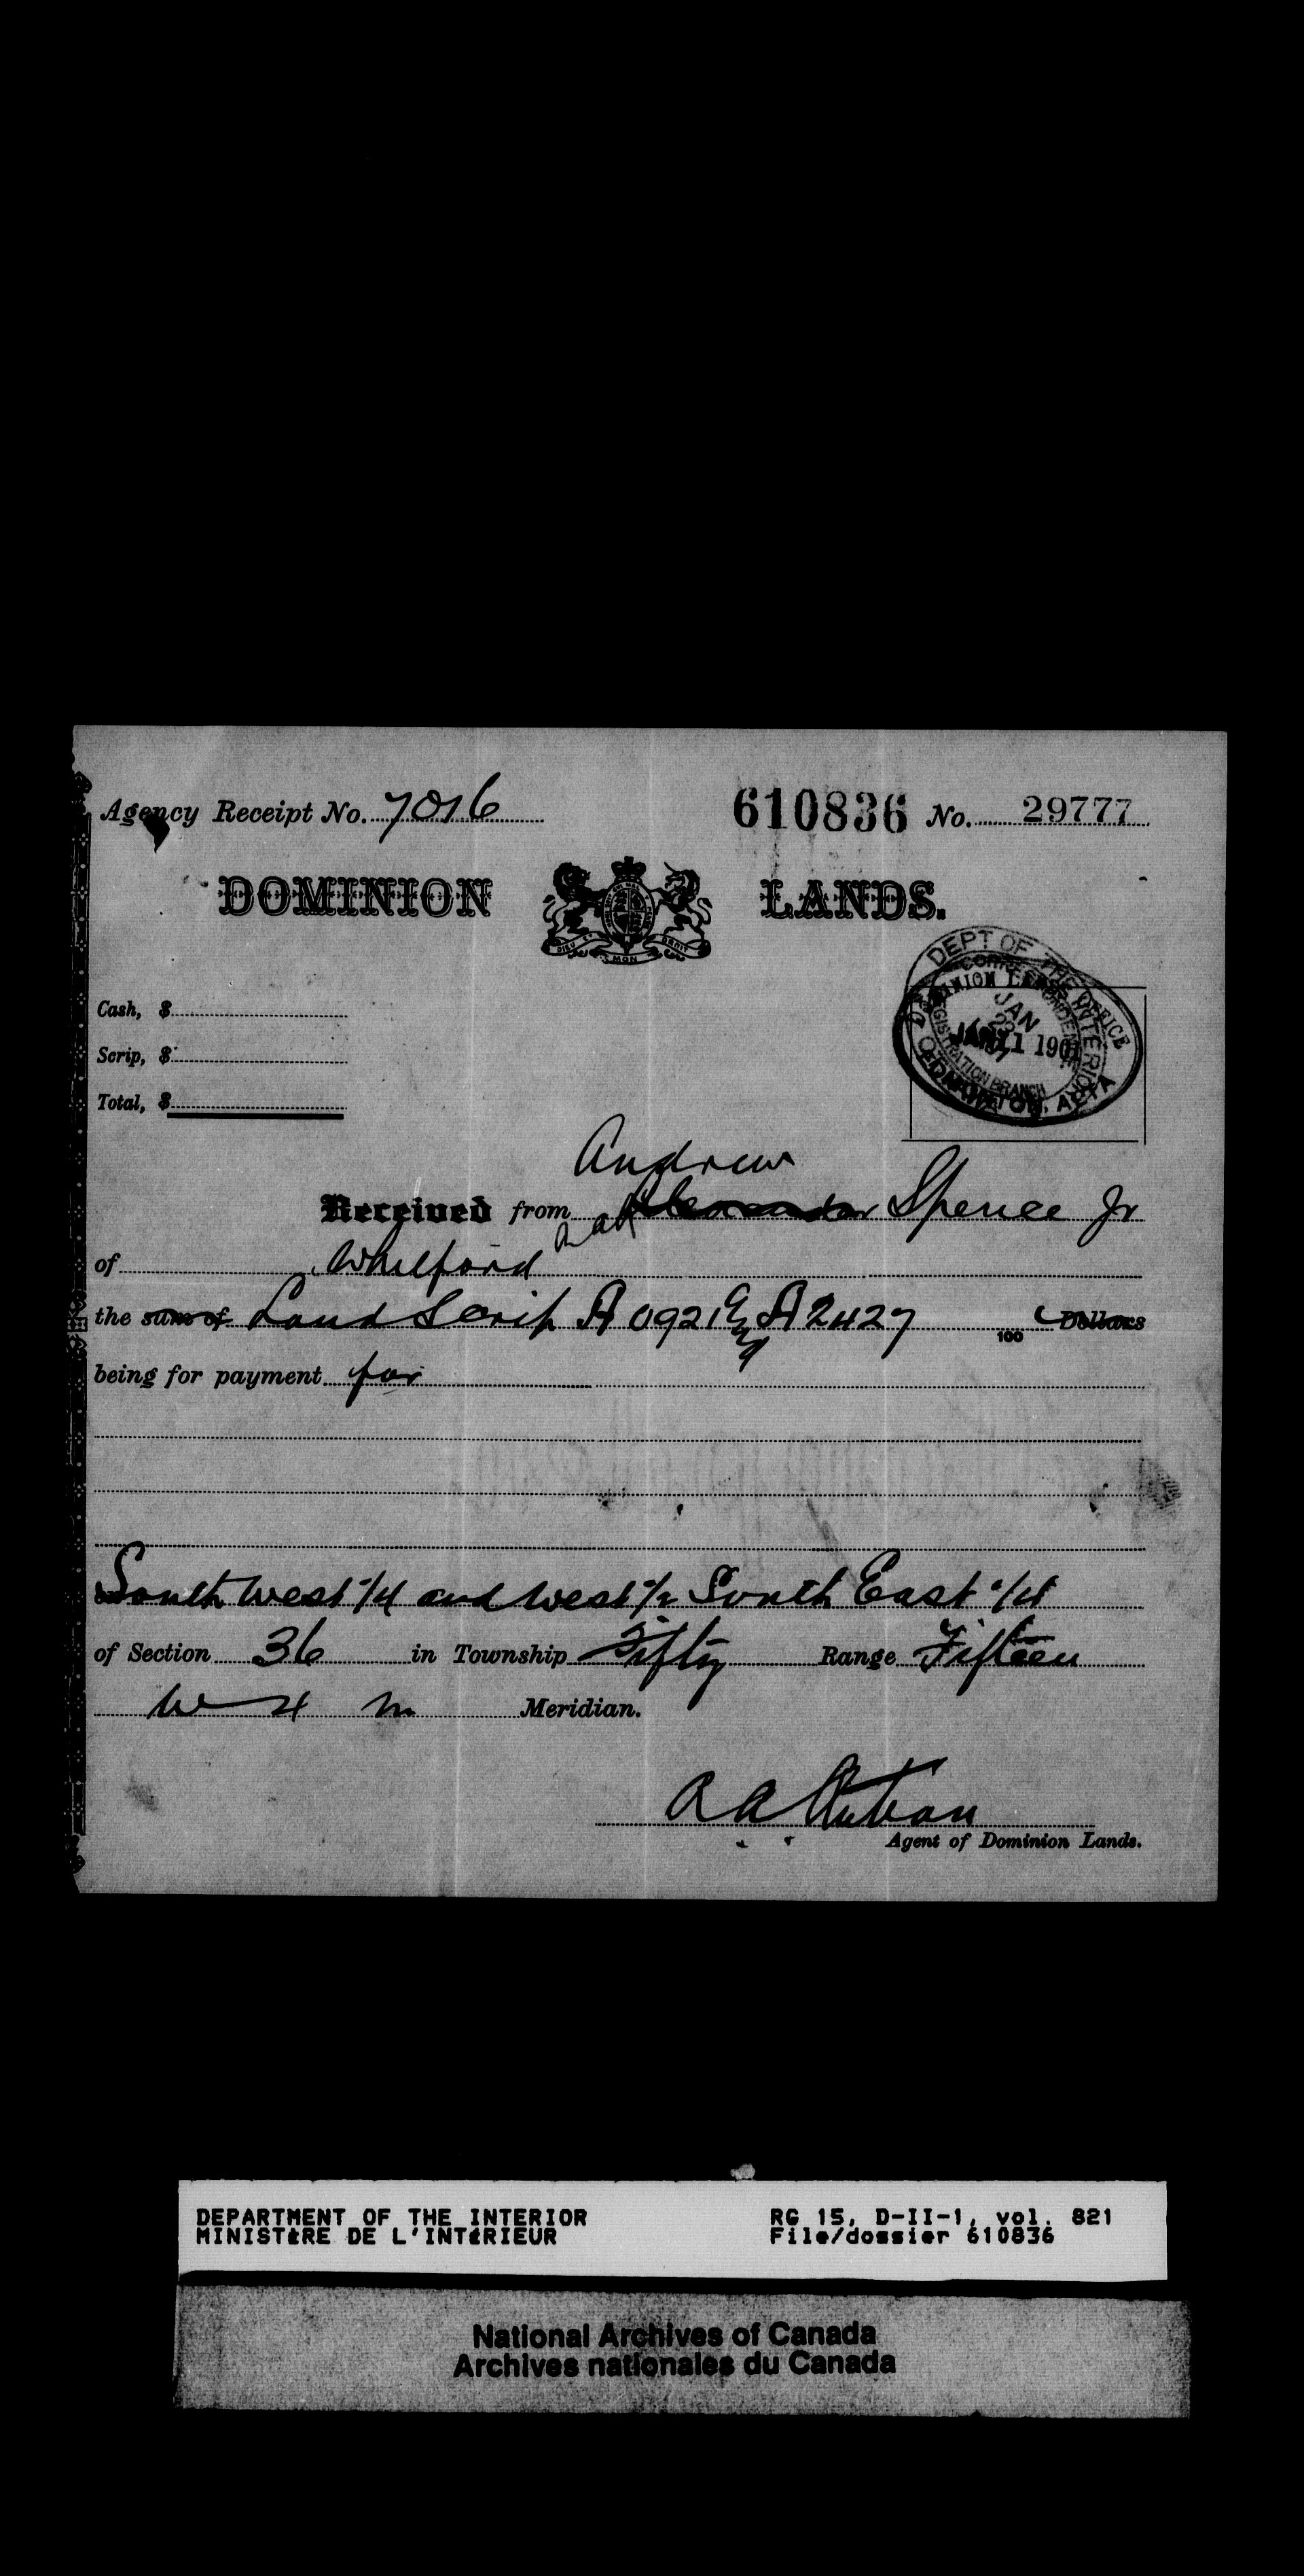 Agency Receipt No. 7016 610836 No. 29777
DOMINION LANDS.
DIEU ET MON DROIT
Cash, $
Scrip, $
Total, $
DEPT OF THE INTERIOR
CORRESPONDENCE
JAN 23
REGISTRATION BRANCH
DOMINION LANDS OFFICE
JAN 11 1901
EDMONTON, ALTA
Andrew
Received from Alexander Spence Jr
of Whitford
the sum of Land Scrip A 0921 & A 2427 100 Dollars
being for payment for
South West 1/4 and West 1/2 South East 1/4
of Section 36 in Township Fifty Range Fifteen
W 4 m Meridian.
Agent of Dominion Lands.
DEPARTMENT OF THE INTERIOR RG 15, D-II-1, vol. 821
MINISTÈRE DE L'INTÉRIEUR File/dossier 610836
National Archives of Canada
Archives nationales du Canada